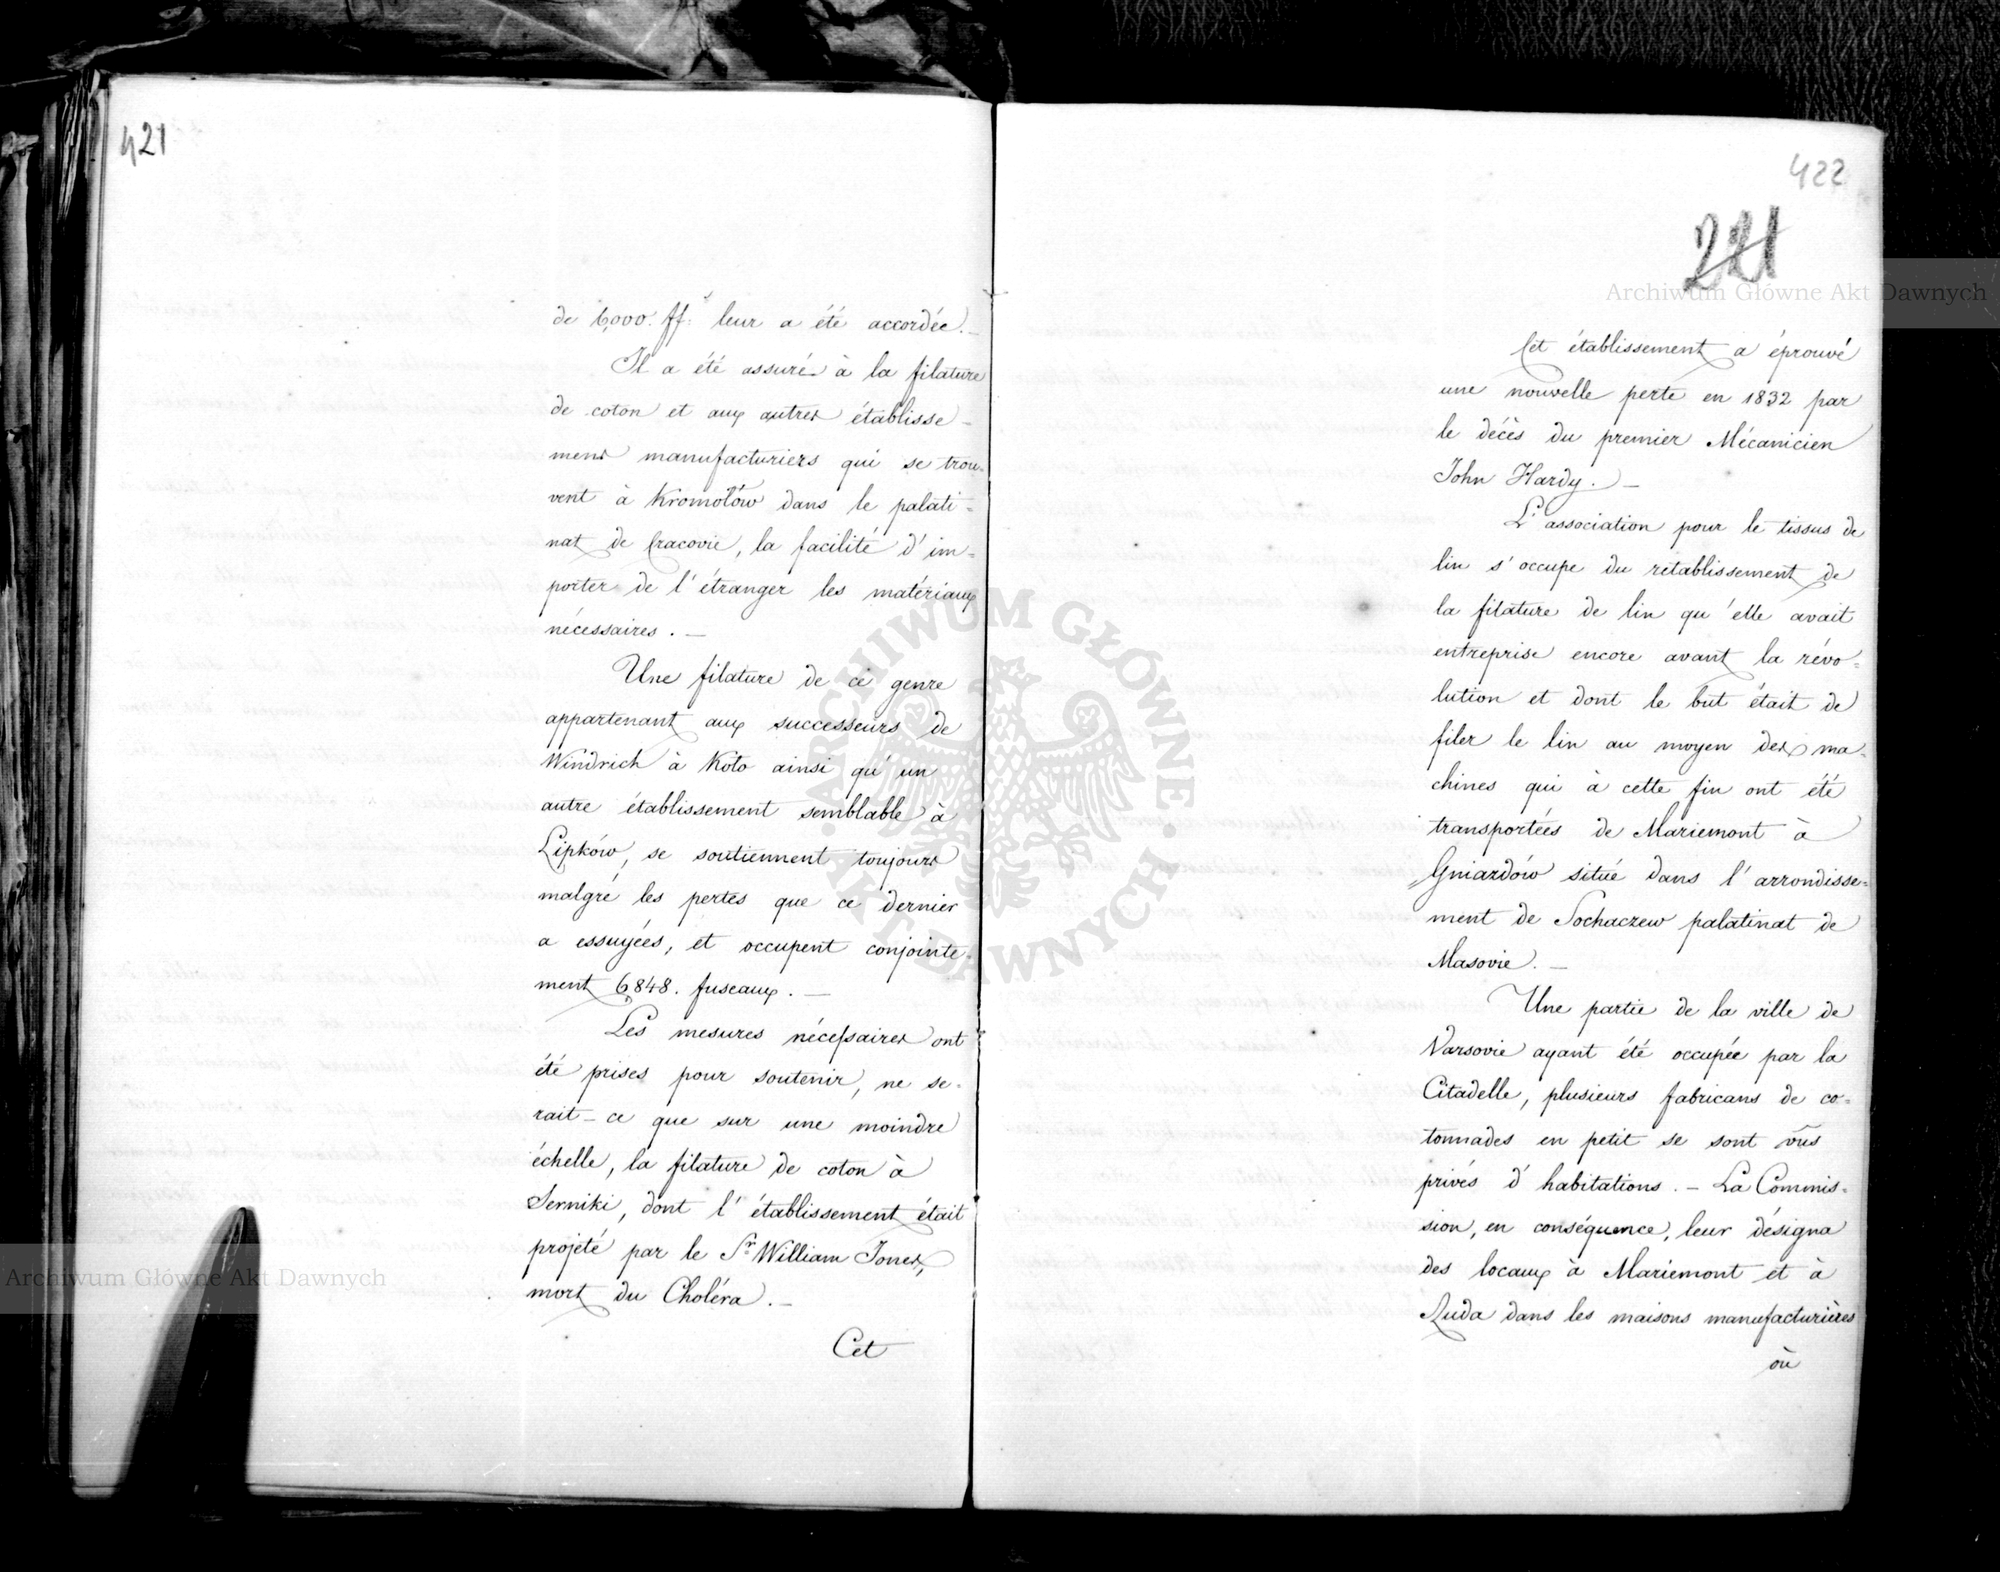 421
de 6,000. ffs leur a été accordée. —
Il a été assuré à la filature
de coton et aux autres établisse-
mens manufacturiers qui se trou-
vent à Kromołów dans le palati-
nat de Cracovie, la facilité d'im-
porter de l'étranger les matériaux
nécessaires. —
Une filature de ce genre
appartenant aux successeurs de
Windrich à Koło ainsi qu'un
autre établissement semblable à
Lipków, se soutiennent toujours
malgré les pertes que ce dernier
a essuyées, et occupent conjointe-
ment 6848. fuseaux. —
Les mesures nécessaires ont
été prises pour soutenir, ne se-
rait-ce que sur une moindre
échelle, la filature de coton à
Serniki, dont l'établissement était
projeté par le Sr William Jones,
mort du Choléra. —
Cet
422
221
Cet établissement a éprouvé
une nouvelle perte en 1832 par
le décès du premier Mécanicien
John Hardy. —
L'association pour le tissus de
lin s'occupe du rétablissement de
la filature de lin qu'elle avait
entreprise encore avant la révo-
lution et dont le but était de
filer le lin au moyen des ma-
chines qui à cette fin ont été
transportées de Mariemont à
Gniazdów situé dans l'arrondisse-
ment de Sochaczew palatinat de
Masovie. —
Une partie de la ville de
Varsovie ayant été occupée par la
Citadelle, plusieurs fabricans de co-
tonnades en petit se sont vus
privés d'habitations. — La Commis-
sion, en conséquence, leur désigna
des locaux à Mariemont et à
Ruda dans les maisons manufacturières
où
Archiwum Główne Akt Dawnych
Archiwum Główne Akt Dawnych
ARCHIWUM GŁÓWNE · AKT DAWNYCH ·